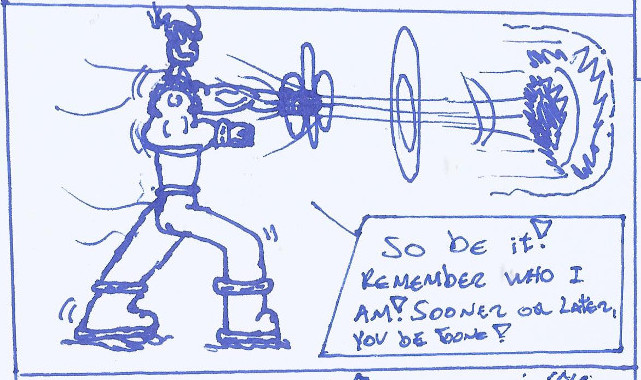 So be it!
Remember who I
am! Sooner or later,
you be done!